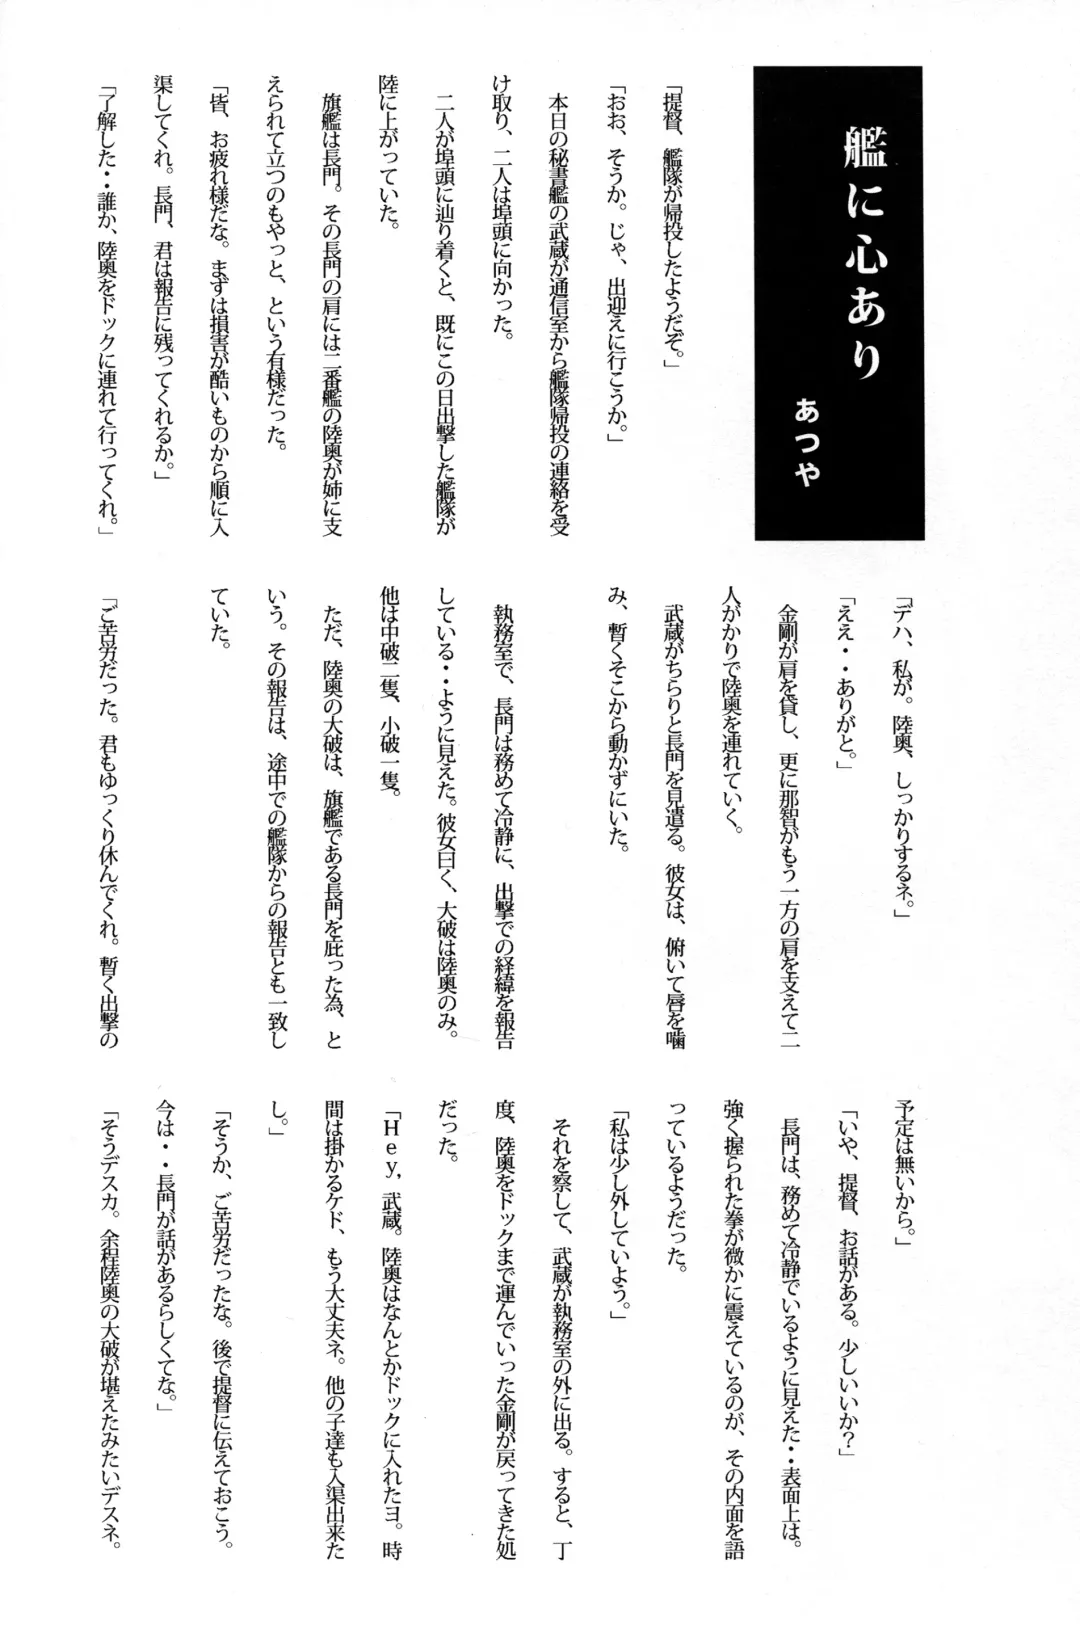 艦に心あり
あつや
「提督、艦隊が帰投したようだぞ。」
「おお、そうか。じゃ、出迎えに行こうか。」
本日の秘書艦の武蔵が通信室から艦隊帰投の連絡を受
け取り、二人は埠頭に向かった。
二人が埠頭に辿り着くと、既にこの日出撃した艦隊が
陸に上がっていた。
旗艦は長門。その長門の肩には二番艦の陸奥が姉に支
えられて立つのもやっと、という有様だった。
「皆、お疲れ様だな。まずは損害が酷いものから順に入
渠してくれ。長門、君は報告に残ってくれるか。」
「了解した・・誰か、陸奥をドックに連れて行ってくれ。」
「デハ、私が。陸奥、しっかりするネ。」
「ええ・・ありがと。」
金剛が肩を貸し、更に那智がもう一方の肩を支えて二
人がかりで陸奥を連れていく。
武蔵がちらりと長門を見遣る。彼女は、俯いて唇を噛
み、暫くそこから動かずにいた。
執務室で、長門は務めて冷静に、出撃での経緯を報告
している・・ように見えた。彼女曰く、大破は陸奥のみ。
他は中破二隻、小破一隻。
ただ、陸奥の大破は、旗艦である長門を庇った為、と
いう。その報告は、途中での艦隊からの報告とも一致し
ていた。
「ご苦労だった。君もゆっくり休んでくれ。暫く出撃の
予定は無いから。」
「いや、提督、お話がある。少しいいか？」
長門は、務めて冷静でいるように見えた・・表面上は。
強く握られた拳が微かに震えているのが、その内面を語
っているようだった。
「私は少し外していよう。」
それを察して、武蔵が執務室の外に出る。すると、丁
度、陸奥をドックまで運んでいった金剛が戻ってきた処
だった。
「Hey, 武蔵。陸奥はなんとかドックに入れたヨ。時
間は掛かるケド、もう大丈夫ネ。他の子達も入渠出来た
し。」
「そうか、ご苦労だったな。後で提督に伝えておこう。
今は・・長門が話があるらしくてな。」
「そうデスカ。余程陸奥の大破が堪えたみたいデスネ。